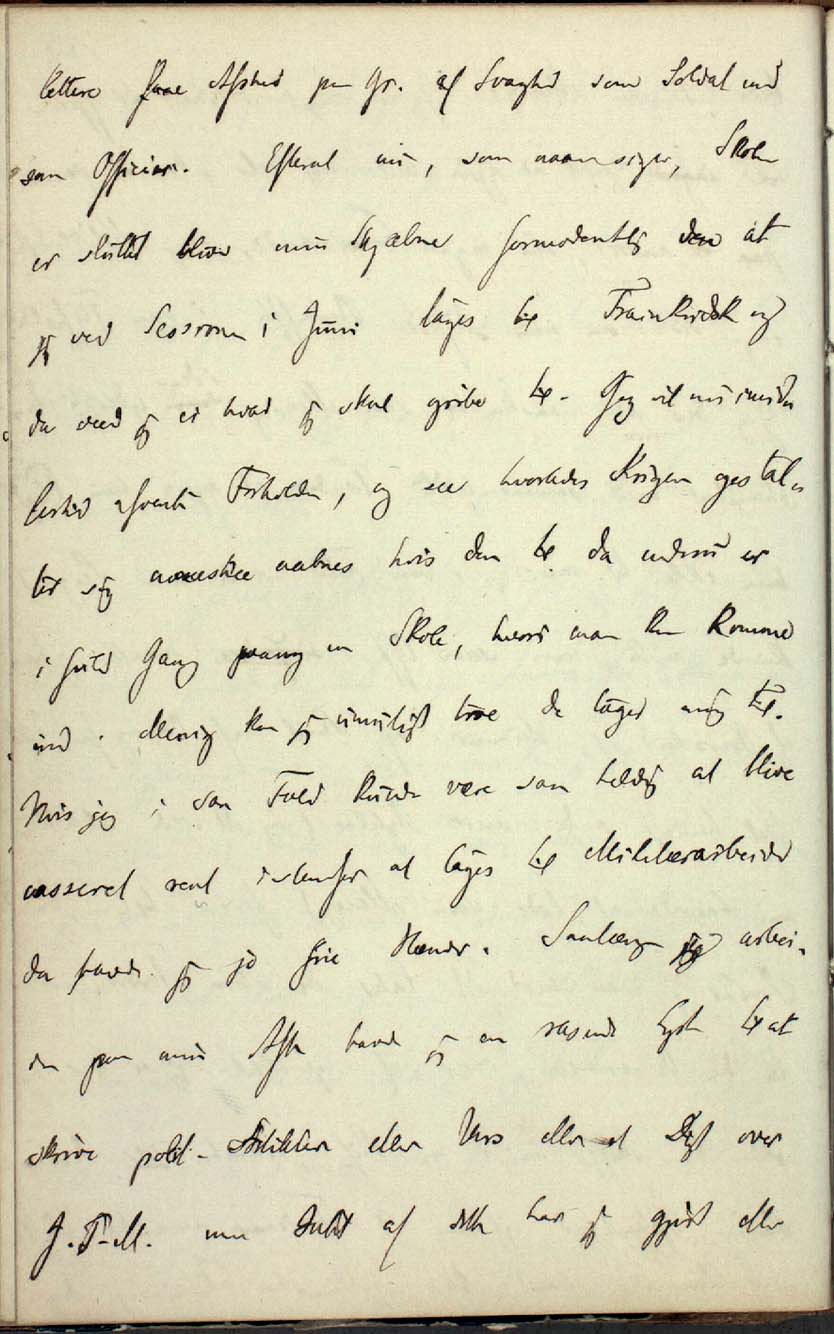 lettere faae Afsked paa Gr. af Svaghed som Soldat end
som Officier. Efterat nu, som man siger, Skolen
er sluttet bliver min Skjæbne formodentlig den at
jeg ved Sessionen i Juni tages til Trainkudsk og
da veed jeg ei hvad jeg skal gribe til. Jeg vil nu imidler
lertid afvente Forholdene, og see hvorledes Krigen gestal-
ter sig maaskee aabnes hvis den til da endnu er
i fuld Gang paany en Skole, hvori man kan komme
ind. Menig kan jeg umuligt troe de tager mig til.
Hvis jeg i saa Fald kunde være saa heldig at blive
casseret reent istedenfor at tages til Militærarbeider
da havde jeg jo frie Hænder. Saalænge jeg arbei-
der paa min Afh. havde jeg en rasende Lyst til at
skrive polit. Artikler eller Vers eller et Digt over
J. T. M. men Intet af dette har jeg gjort eller